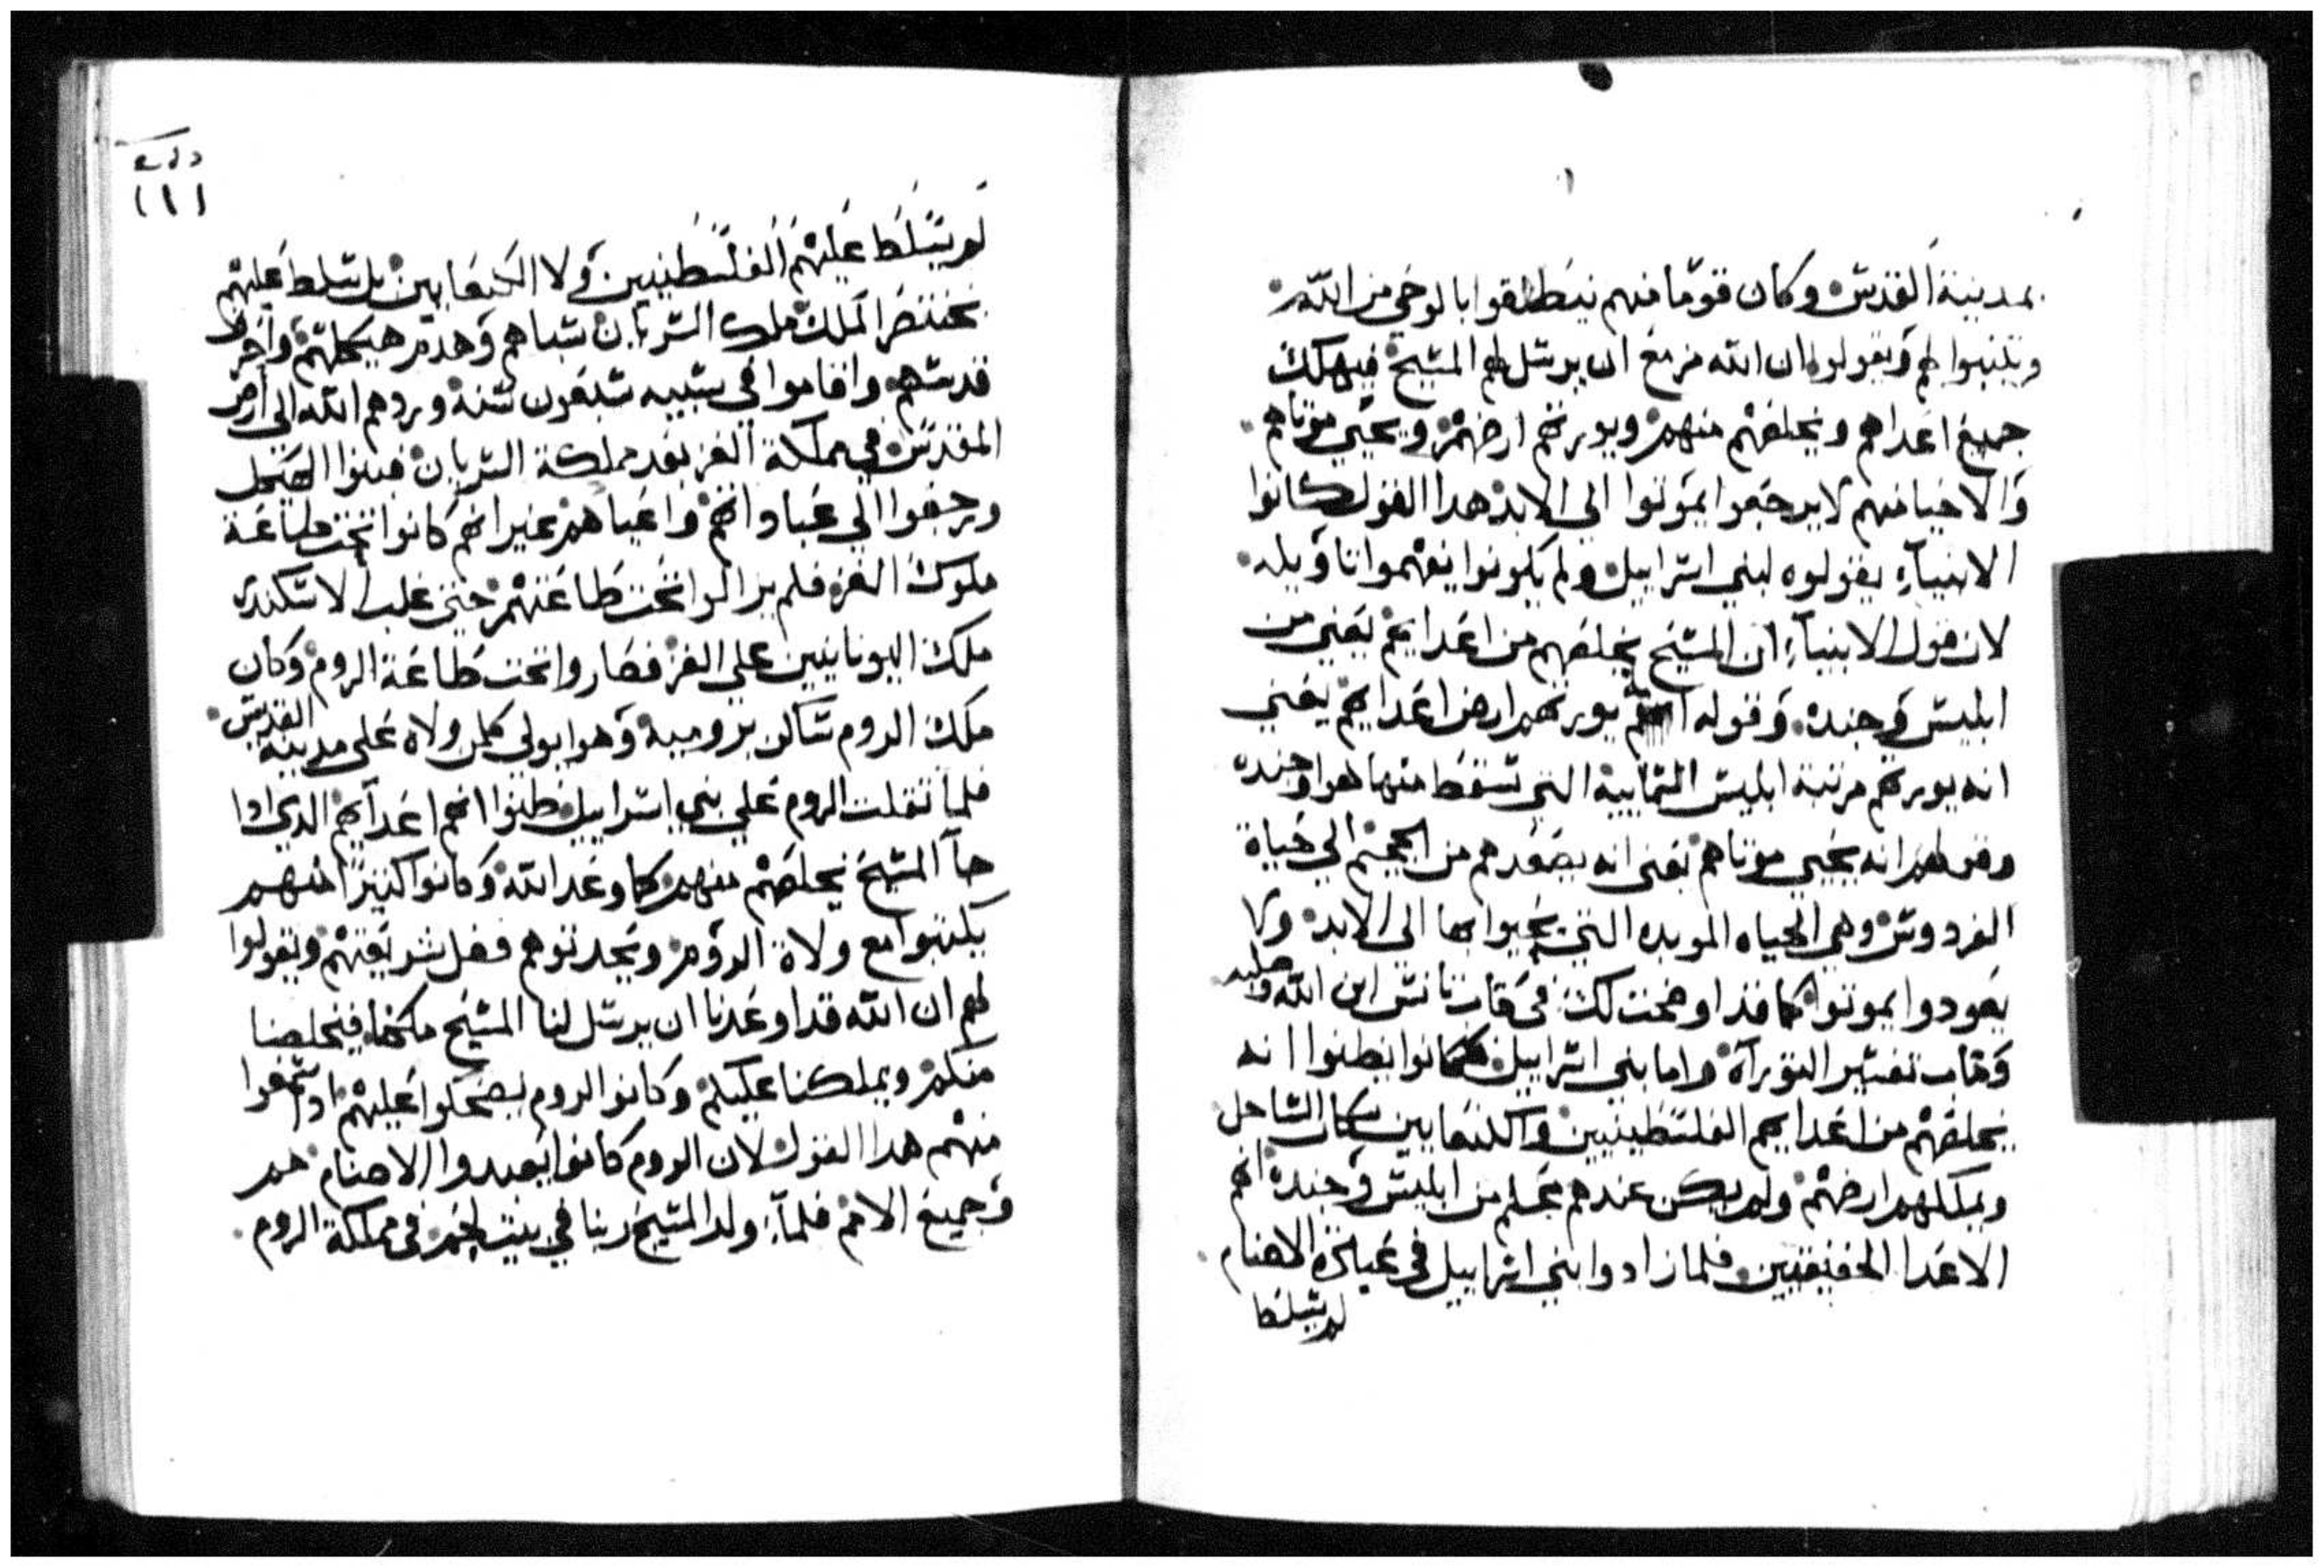 بمدينة القدس وكان قومًا منهم ينطلقوا بالوحي من الله
ويتنبوا لهم ويقولوا ان الله مزمع ان يرسل لهم المسيح فيهلك
جميع اعداهم ويخلصهم منهم ويورثهم ارضهم ويحيي موتاهم
والاحيا منهم لا يرجعوا يموتوا الي الابد هدا القول كانوا
الانبيآء يقولوه لبني اسراييل ولم يكونوا يفهموا تاويله
لان قول الانبيآء ان المسيح يخلصهم من اعدايهم يعني من
ابليس وجنده وقوله انه يورثهم ارض اعدايهم يعني
انه يورثهم مرتبة ابليس السمايية التي سقط منها هوا وجنده
وقولهم انه يحيي موتاهم يعني انه يصعدهم من الجحيم الي حياة
الفردوس وهي الحياه الموبده التي يحيوا بها الي الابد ولا
يعودوا يموتوا كما قد اوضحت لك في كتاب تانس ابن الله وصلبه
وكتاب تفسير التوراة واما بني اسراييل فكانوا يظنوا انه
يخلصهم من اعدايهم الفلسطينيين والكنعانيين سكان الساحل
ويملكهم ارضهم ولم يكن عندهم علم من ابليس وجنده انهم
الاعدا الحقيقيين فلما زادوا بني اسراييل في عبادة الاصنام
لم يتسلط
(١١١
لم يتسلط عليهم الفلسطينيين ولا الكنعانيين بل تسلط عليهم
بختنصر الملك ملك السريان سباهم وهدم هيكلهم واخرب
قدسهم واقاموا في سبيه سبعون سنة وردهم الله الي ارض
المقدس في مملكة الفرس بعد مملكة السريان فبنوا الهيكل
ورجعوا الي عباداتهم واعيادهم غير انهم كانوا تحت طاعة
ملوك الفرس فلم يزالوا تحت طاعتهم حتي غلب الاسكندر
ملك اليونانيين علي الفرس فصاروا تحت طاعة الروم وكان
ملك الروم ساكن برومية وهوا يولي كل من ولاه علي مدينة القدس
فلما ثقلت الروم علي بني اسراييل ظنوا انهم اعدآيهم الدي ادا
جآ المسيح يخلصهم منهم كما وعد الله وكانوا كثيرًا منهم
يكتبوا مع ولاة الروم ويحدثوهم فصل شريعتهم ويقولوا
لهم ان الله قد اوعدنا ان يرسل لنا المسيح ملكنا فيخلصنا
منكم ويملكنا عليكم وكانوا الروم يضحكوا عليهم ادا سمعوا
منهم هدا القول لان الروم كانوا يعبدوا الاصنام هم
وجميع الامم فلمآ ولد المسيح ربنا في بيت لحم في مملكة الروم